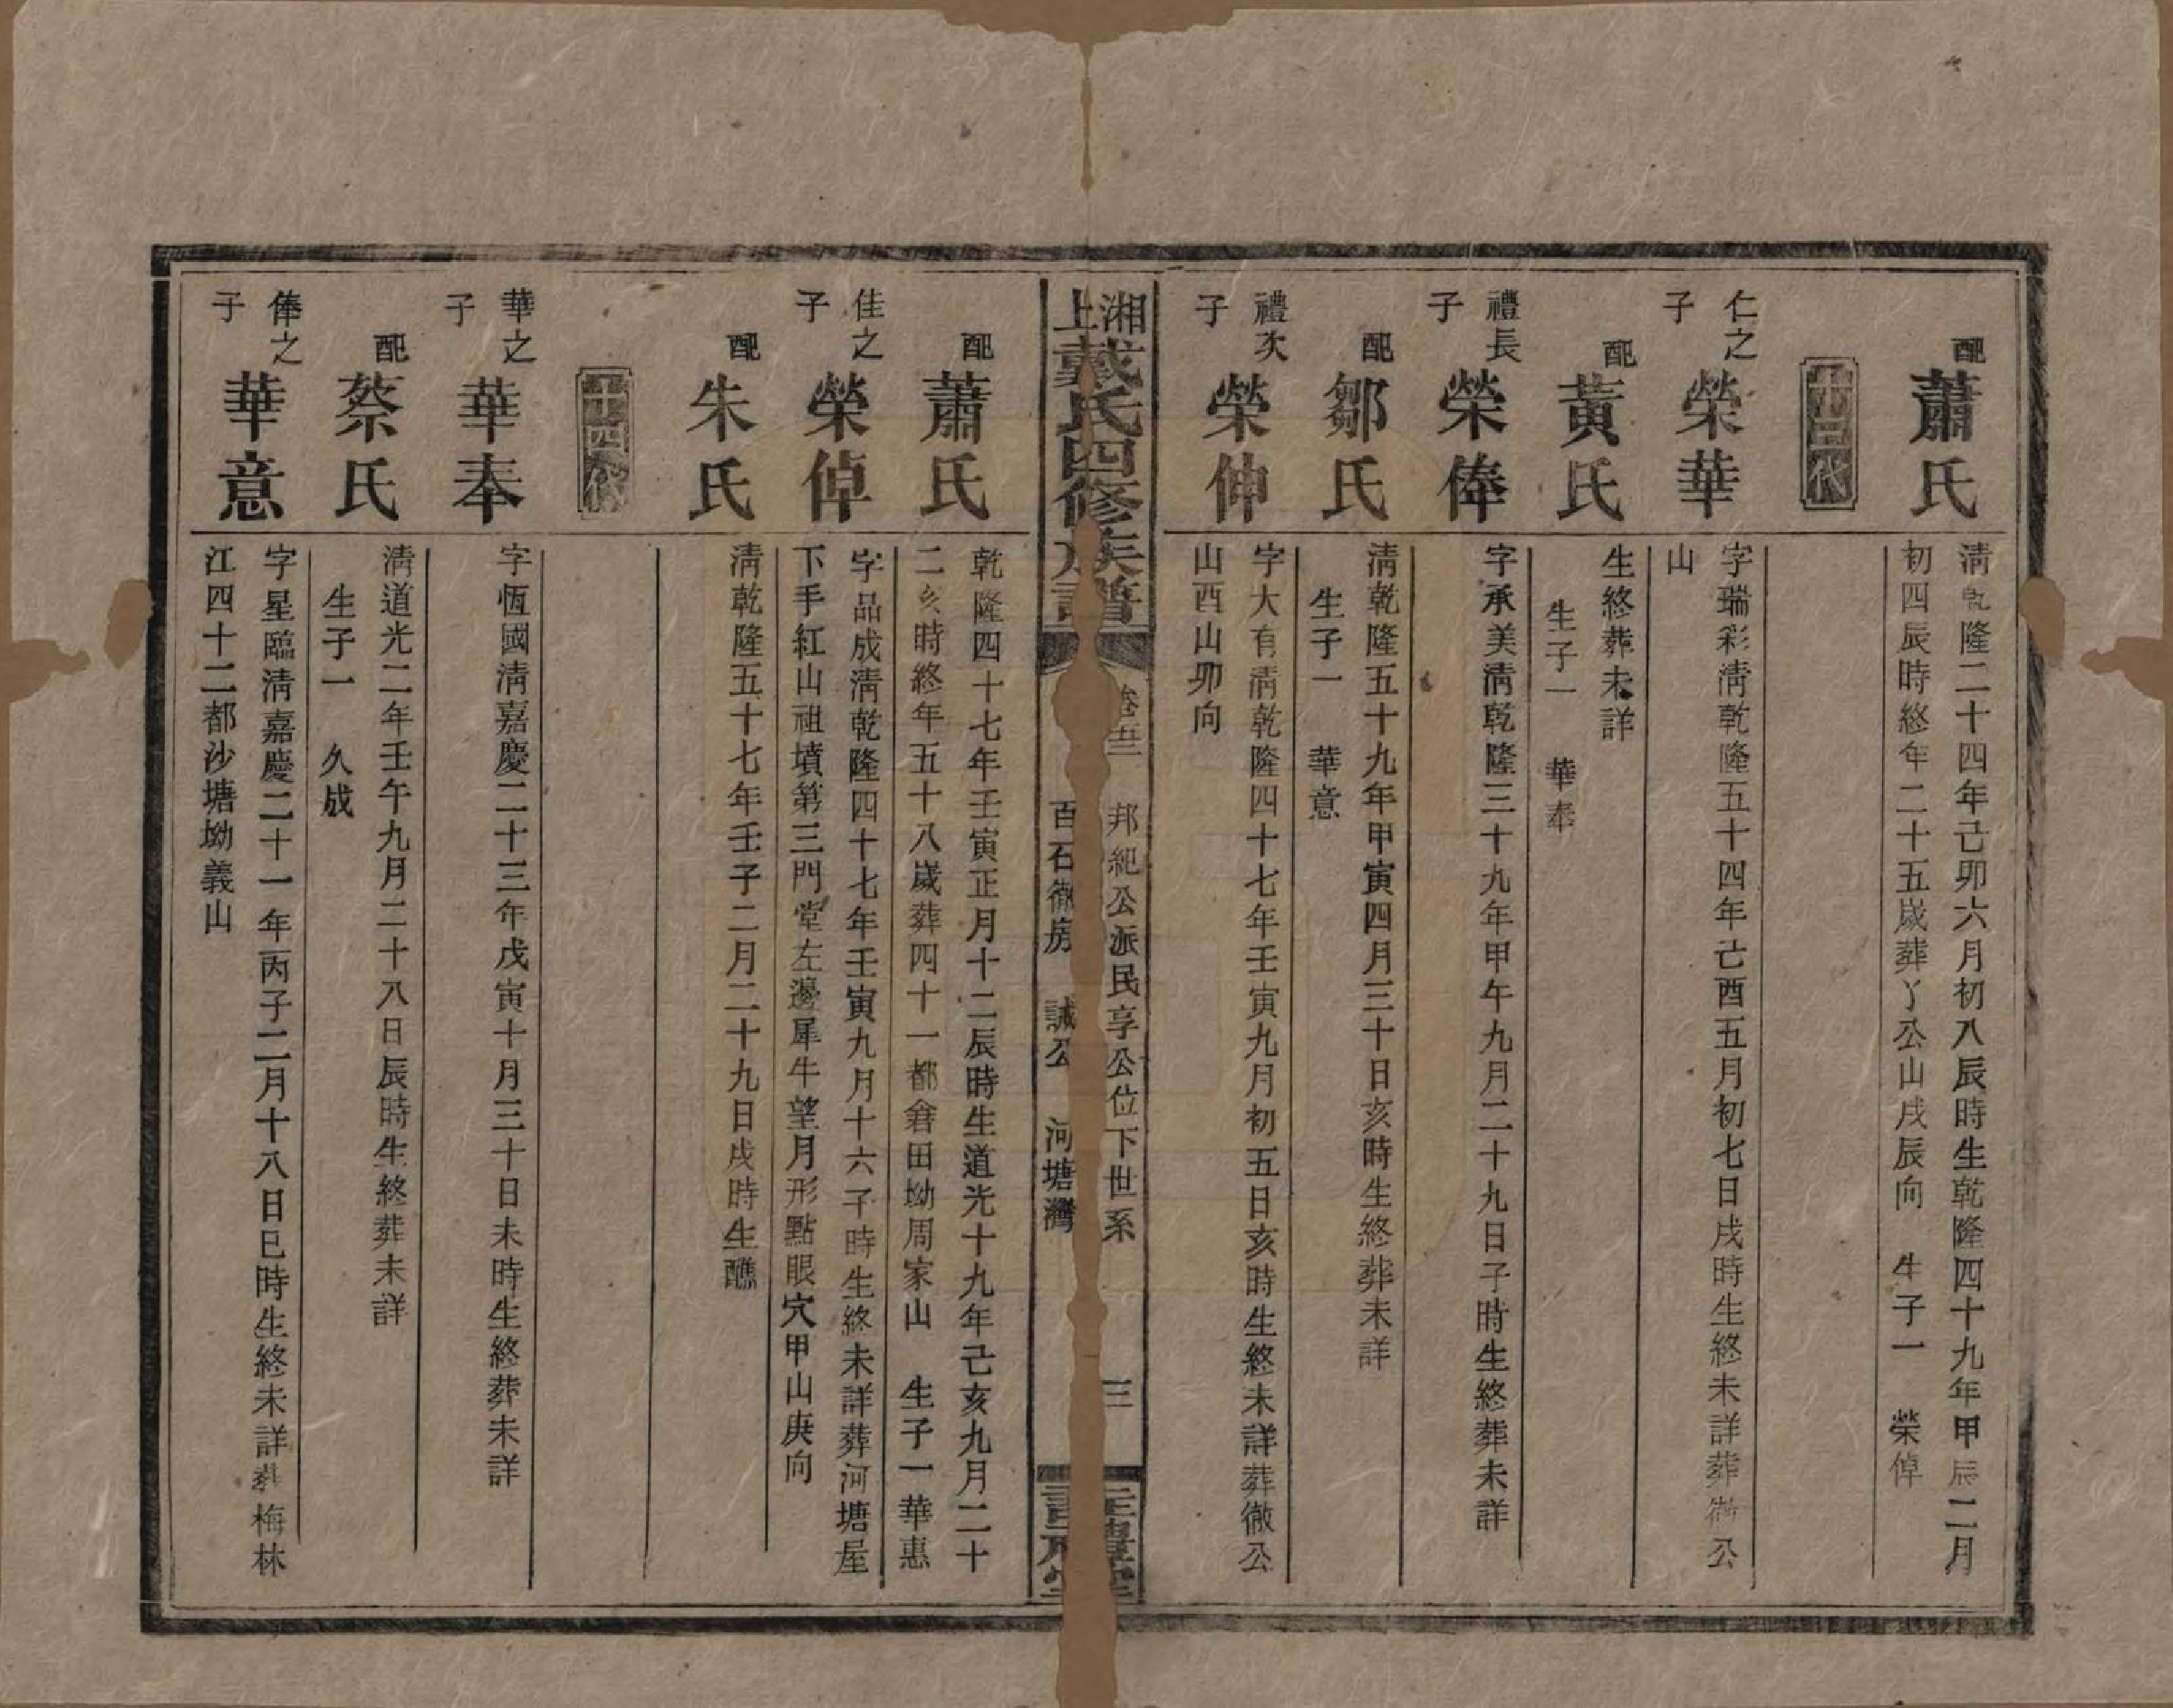 配
蕭氏
清乾隆二十四年己卯六月初八辰時生乾隆四十九年甲辰二月
初四辰時終年二十五歲葬丫公山戌辰向　生子一　榮倬
十三代
仁之
子
榮華
字瑞彩清乾隆五十四年己酉五月初七日戌時生終未詳葬徹公
山
配
黃氏
生終葬未詳
生子一　華奉
禮長
子
榮俸
字承美清乾隆三十九年甲午九月二十九日子時生終葬未詳
配
鄒氏
清乾隆五十九年甲寅四月三十日亥時生終葬未詳
生子一　華意
禮次
子
榮伸
字大有清乾隆四十七年壬寅九月初五日亥時生終未詳葬徹公
山酉山卯向
湘上戴氏四修族譜
卷五
邦紀公派民享公位下世系
百石徹房　誠公　河塘灣
三
配
蕭氏
乾隆四十七年壬寅正月十二辰時生道光十九年己亥九月二十
二亥時終年五十八歲葬四十一都倉田坳周家山　生子一華惠
佳之
子
榮倬
字品成清乾隆四十七年壬寅九月十六子時生終未詳葬河塘屋
下手紅山祖墳第三門堂左邊犀牛望月形點眼穴甲山庚向
配
朱氏
清乾隆五十七年壬子二月二十九日戌時生醮
十四代
華之
子
華奉
字恆國清嘉慶二十三年戊寅十月三十日未時生終葬未詳
配
蔡氏
清道光二年壬午九月二十八日辰時生終葬未詳
生子一　久成
俸之
子
華意
字星臨清嘉慶二十一年丙子二月十八日巳時生終未詳葬梅林
江四十二都沙塘坳義山